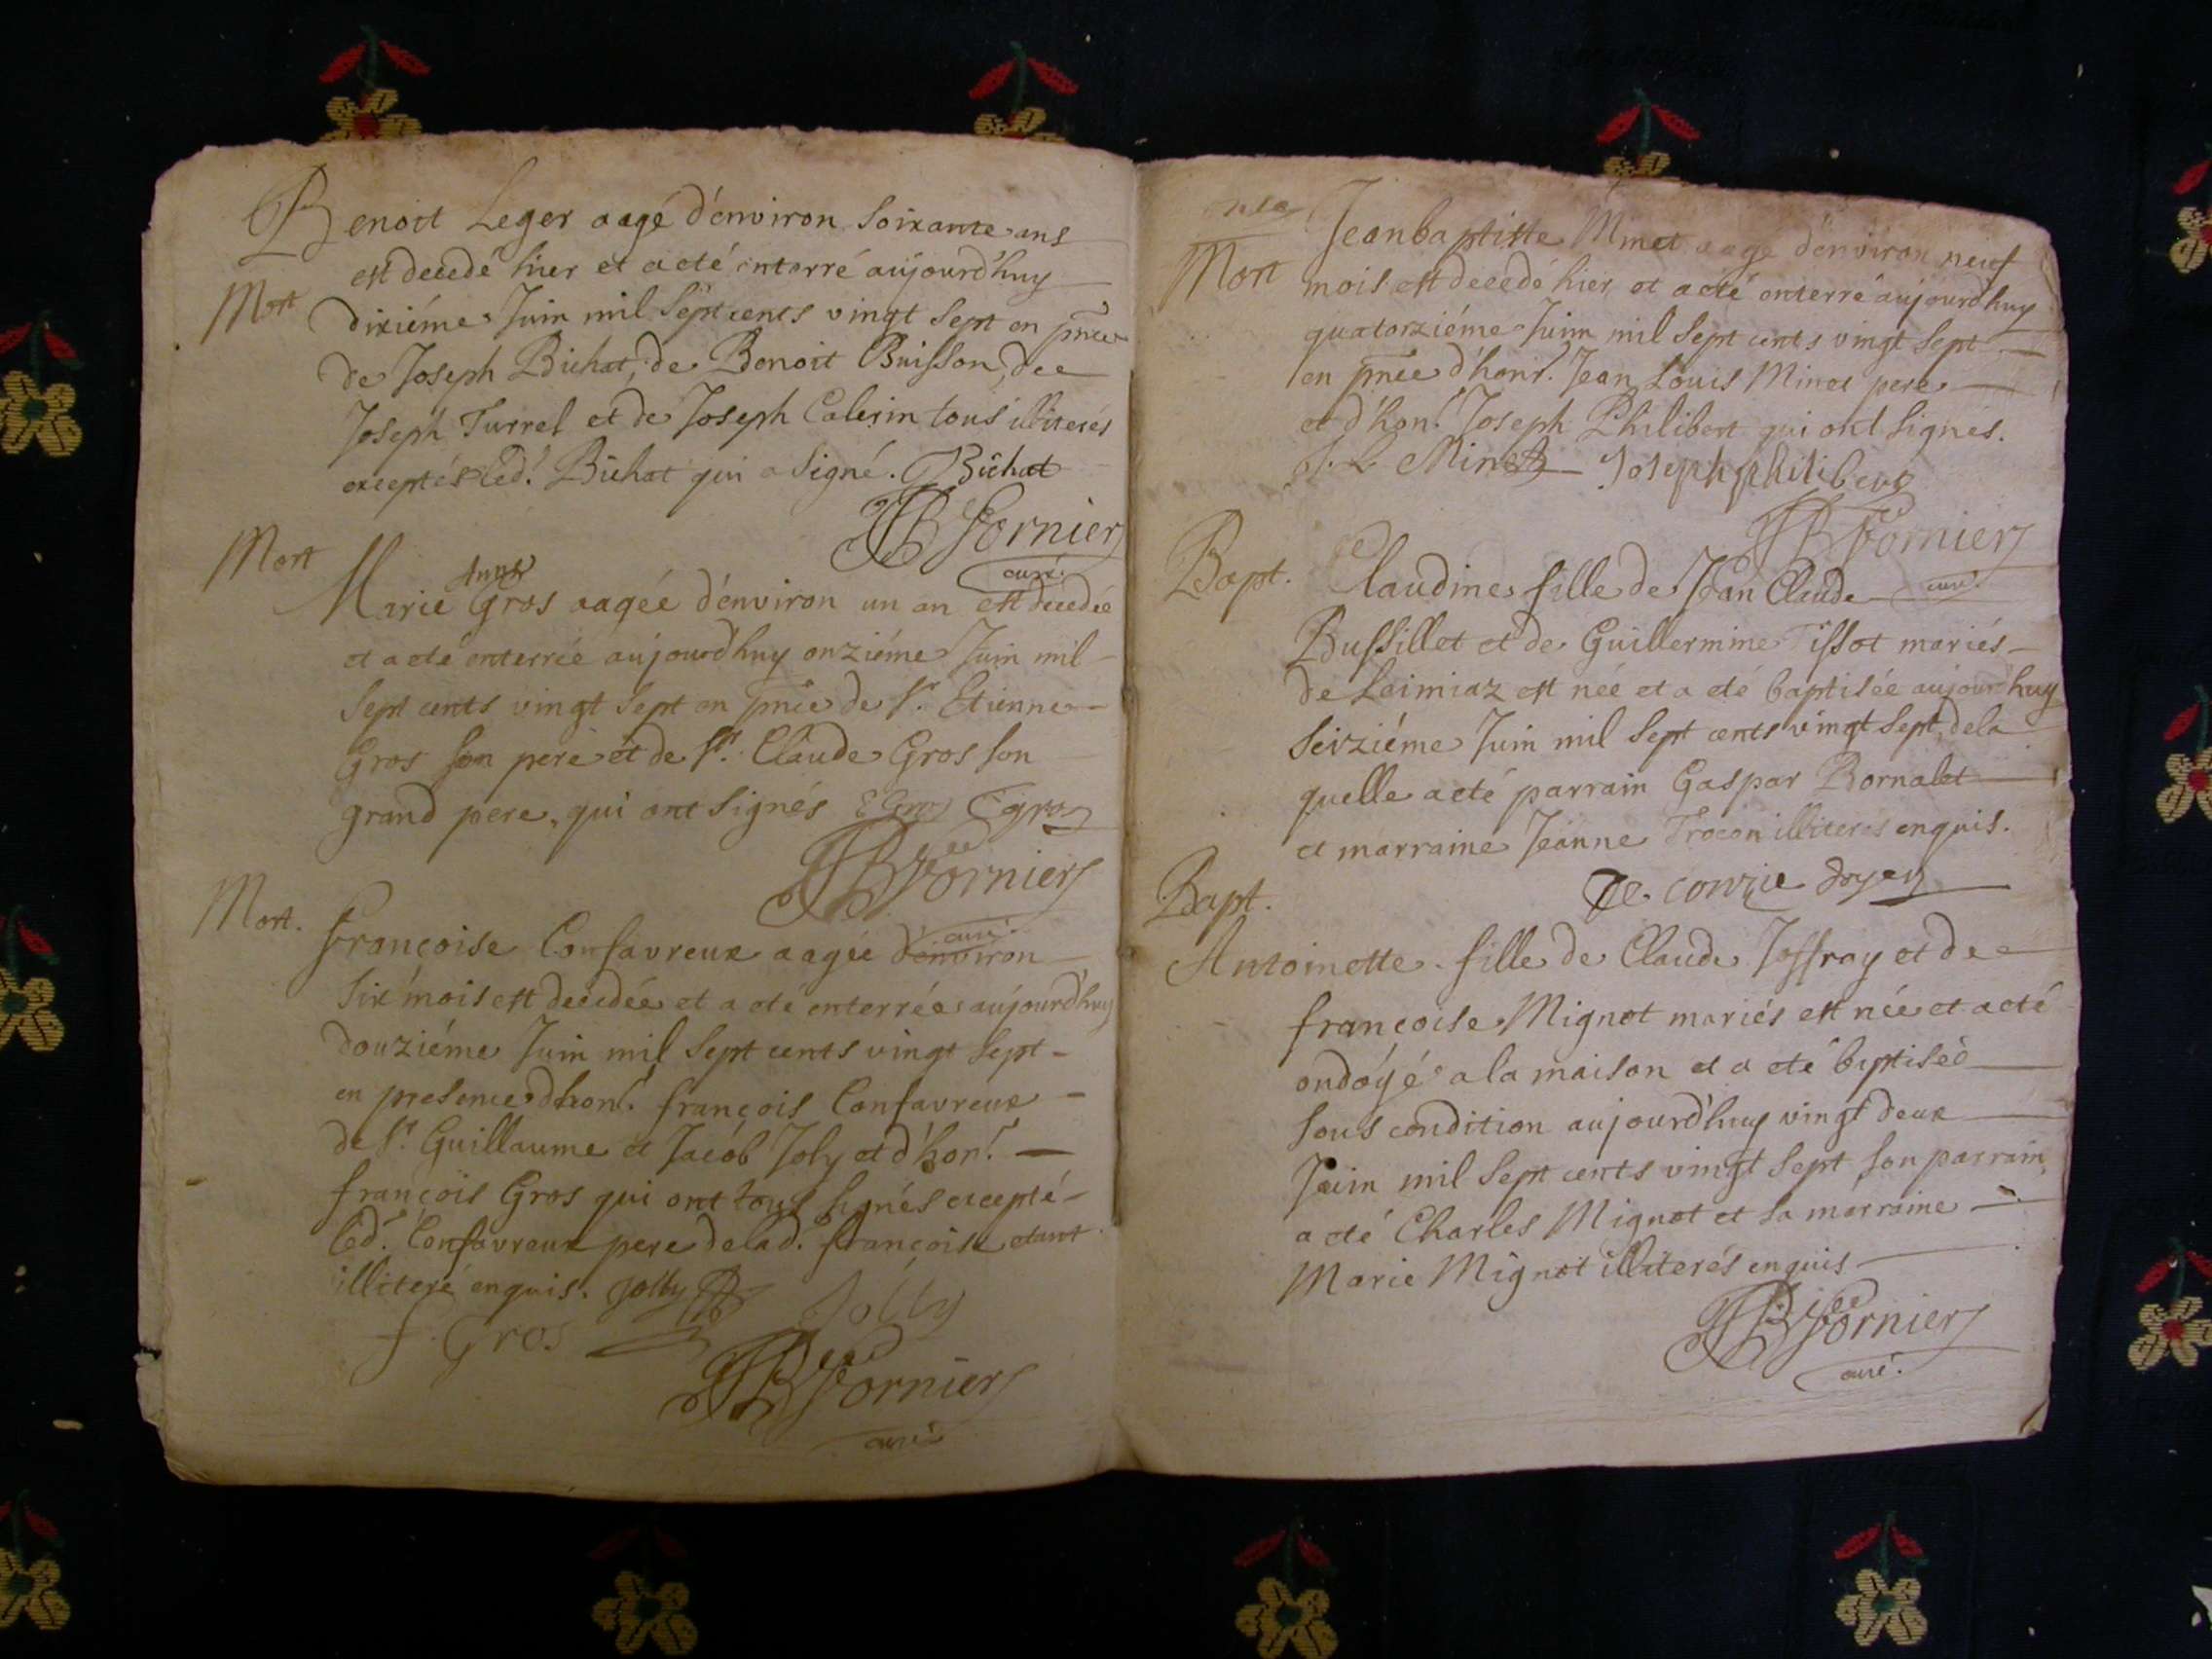 Benoit Leger aagé d'environ soixante ans
est decedé hier et a eté enterré aujourd'huy
Mort
dixiéme Juin mil sept cents vingt sept en pñce
de Joseph Bichat, de Benoit Buisson, de
Joseph Turrel et de Joseph Calerin tous illiterés
exceptés led.t Bichat qui a signé. Bichat
JB Fornier
curé.
Mort
Anne
Marie Gros aagée d'environ un an est decedée
et a eté enterrée aujourd'huy onziéme Juin mil
sept cents vingt sept en pñce de Sr. Etienne
Gros son pere et de Sr. Claude Gros son
grand pere, qui ont signés E Gros C gros
JB Fornier
curé.
Mort.
françoise Confavreux aagée d'environ
six mois est decedée et a eté enterrée aujourd'huy
douziéme Juin mil sept cents vingt sept
en presence d'hon.t françois Confavreux
de Sr. Guillaume et Jacob Joly et d'hon.t
françois Gros qui ont tous signés excepté
led.t Confavreux pere de lad. françoise etant
illiteré enquis. Jolly Jolly
f. Gros
JB Fornier
curé
Jean baptiste Minet aagé d'environ neuf
Mort
mois est decedé hier et a eté enterré aujourd'huy
quatorziéme Juin mil sept cents vingt sept
en pñce d'hon.t Jean Louis Minet pere
et d'hon.t Joseph Philibert qui ont signés.
J. L. Minet Joseph philibert
JB Fornier
curé.
Bapt.
Claudine fille de Jean Claude
Bussillet et de Guillermine Tissot mariés
de Leimiaz est née et a eté baptisée aujourd'huy
seiziéme Juin mil sept cents vingt sept, de la
quelle a eté parrain Gaspar Bornalet
et marraine Jeanne Trocon illiterés enquis.
De conzie doyen
Bapt.
Antoinette fille de Claude Joffray et de
françoise Mignot mariés est née et a eté
ondoyé a la maison et a eté baptisée
sous condition aujourd'huy vingt deux
Juin mil sept cents vingt sept son parrain
a eté Charles Mignot et sa marraine
Marie Mignot illiterés enquis
JB Fornier
curé.